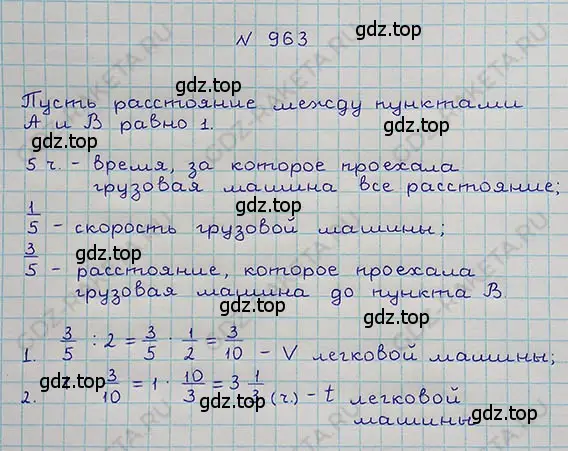 N 963
gdz.top
Пусть расстояние между пунктами
А и В равно 1.
gdz.top
5 ч. - время, за которое проехала
грузовая машина все расстояние;
gdz.top
1/5 - скорость грузовой машины;
gdz.top
3/5 - расстояние, которое проехала
грузовая машина до пункта В.
gdz.top
1. 3/5 : 2 = 3/5 · 1/2 = 3/10 - V легковой машины;
gdz.top
2. 3/10 = 1 · 10/3 = 3 1/3 (ч.) - t легковой
машины
gdz.top
GDZ-RAKETA.RU